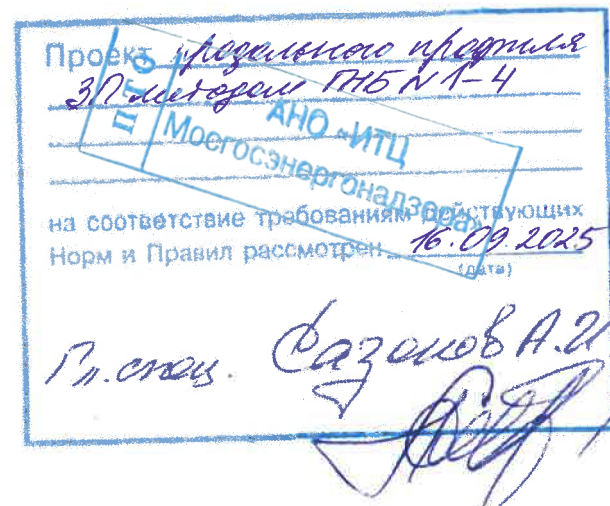 Проект продольного профиля
ЗП методом ГНБ №1-4
ПТО
АНО «ИТЦ
Мосгосэнергонадзора»
на соответствие требованиям действующих
Норм и Правил рассмотрен 16.09.2025
(дата)
Гл. спец. Сазонов А.И